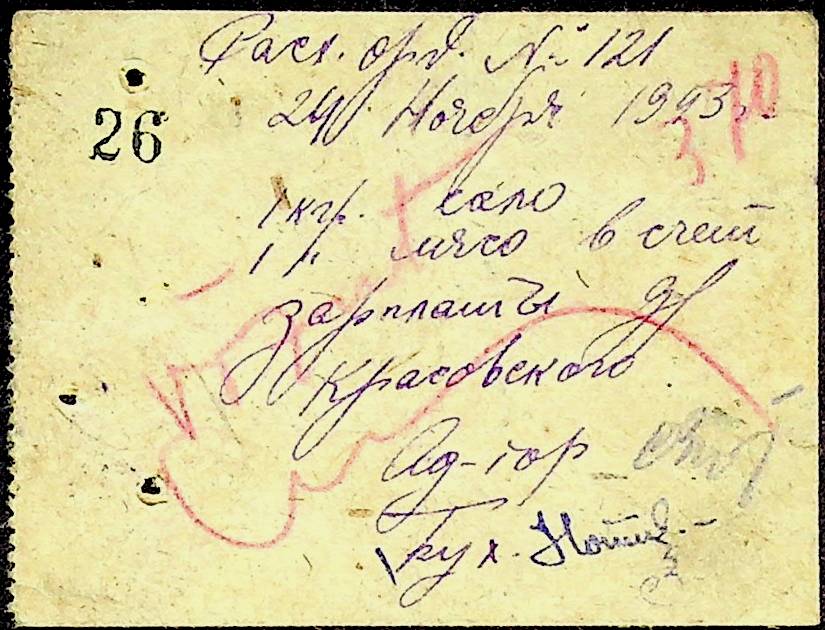 Расх. орд. № 121
26
24 Ноября 1943 г.
1 кгр. сало
1 " мясо в счет
зарплаты др
Красовского
Ад-тор
Бух.